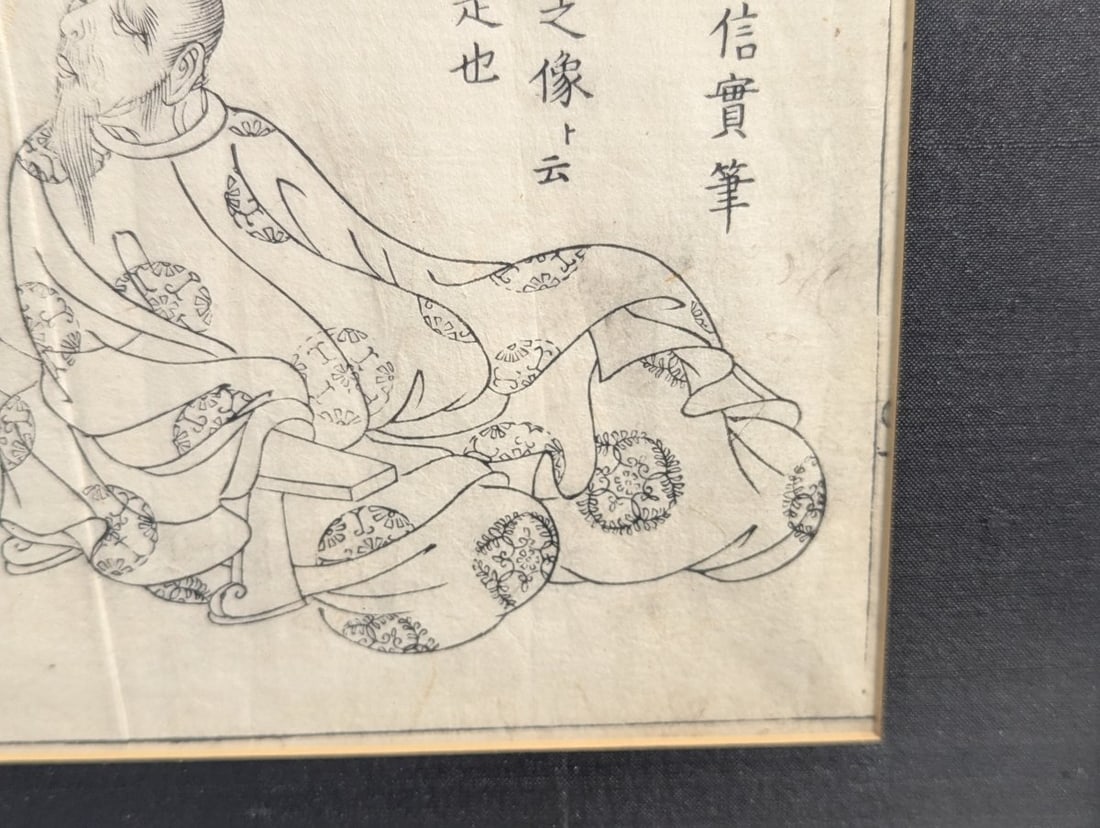 信實筆
之像ト云
是也